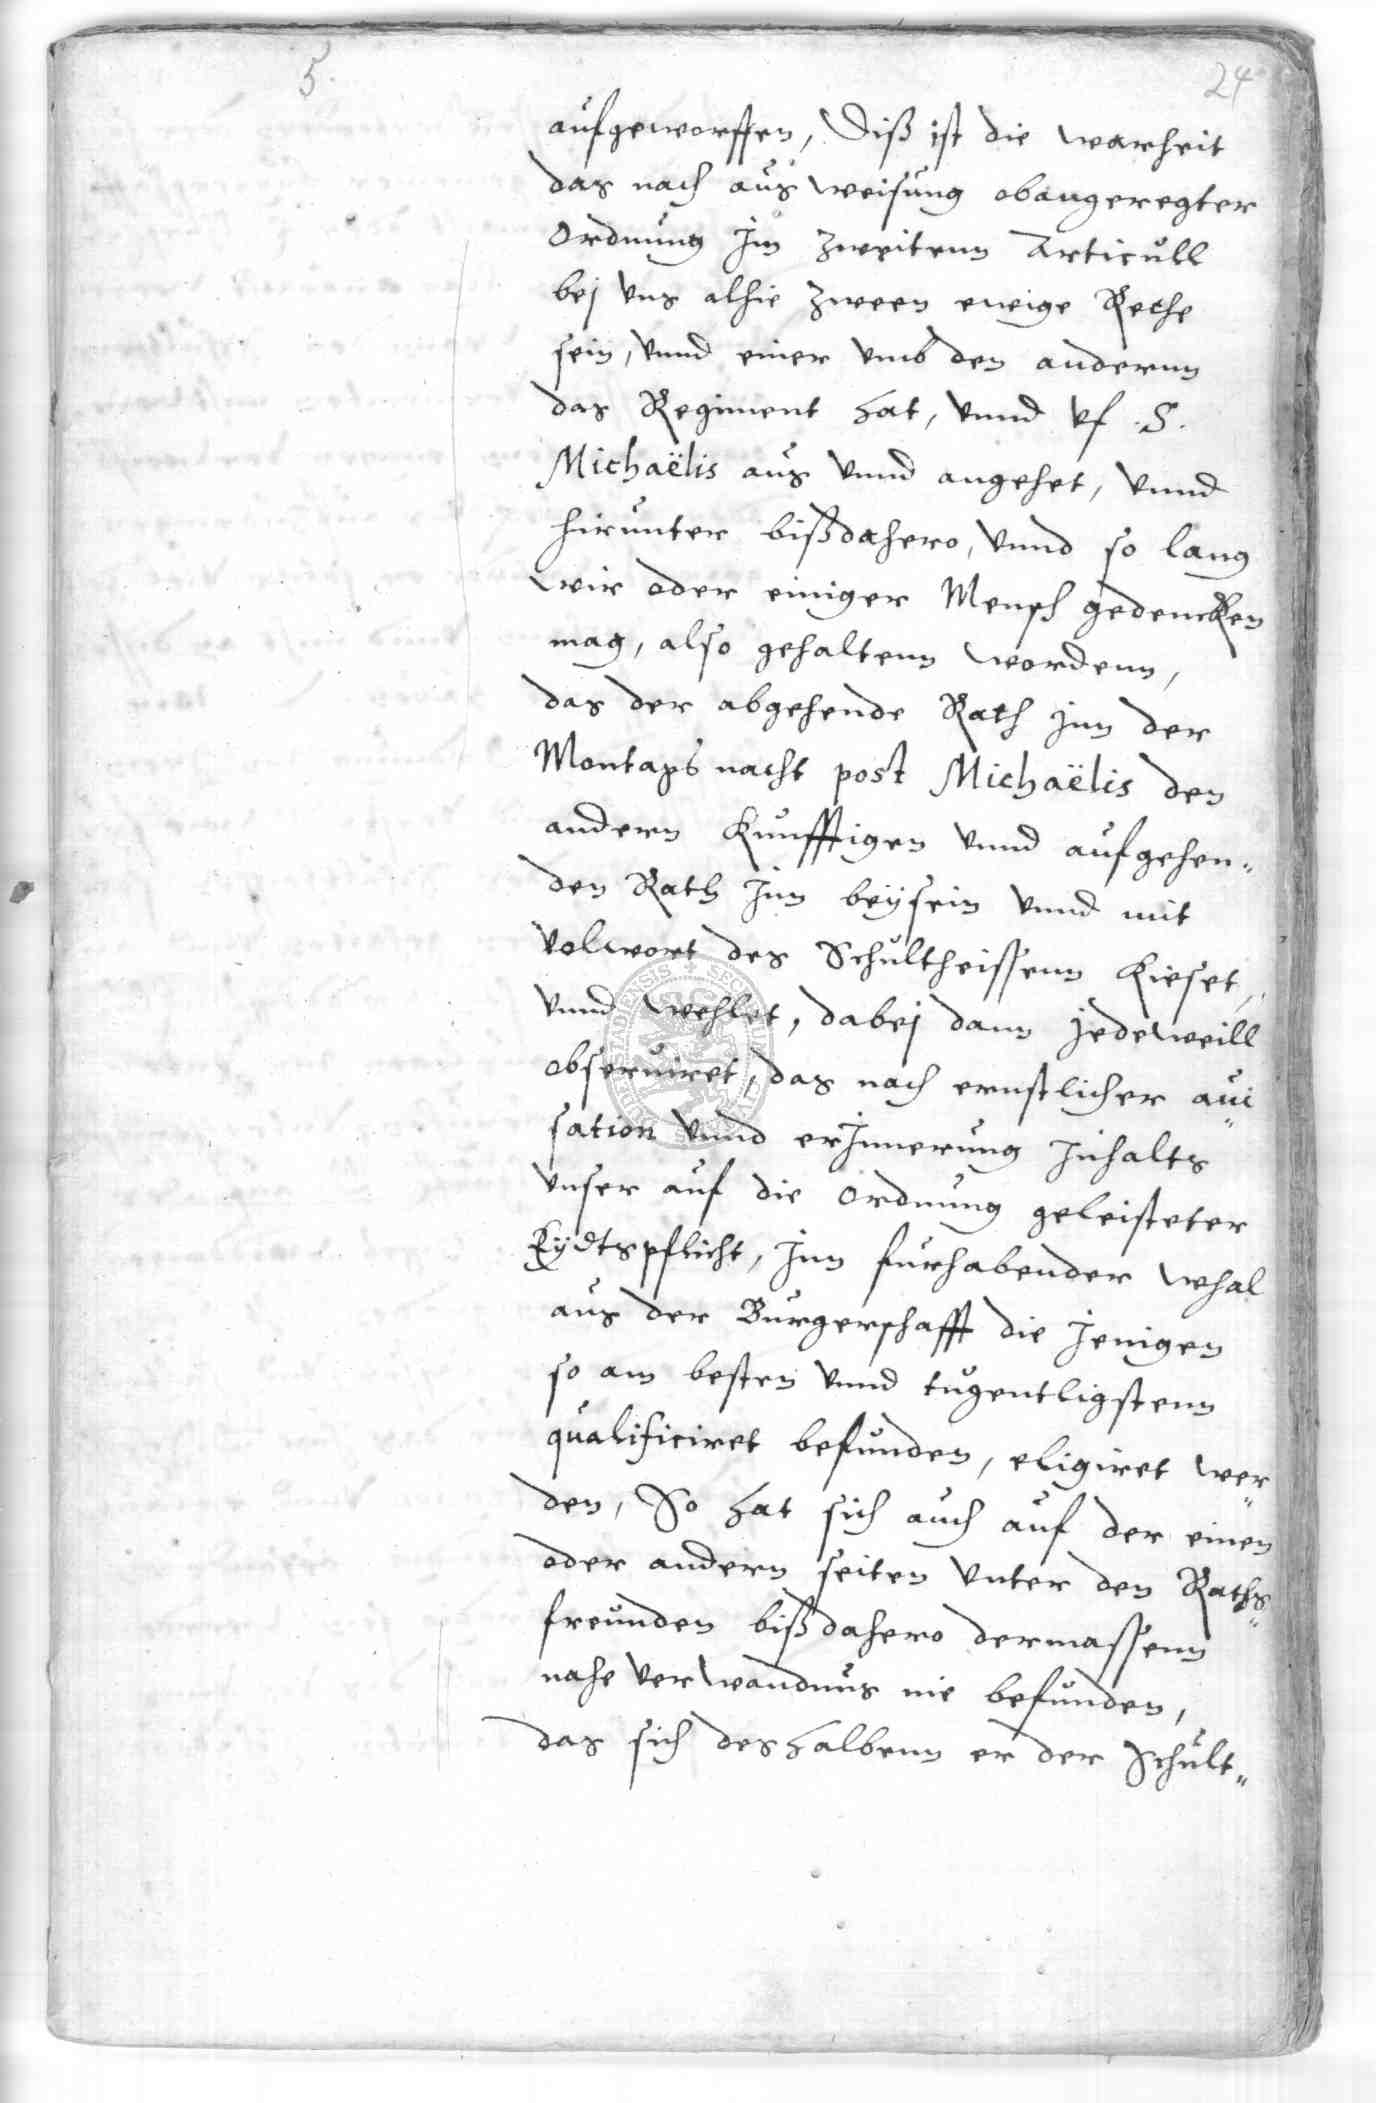 5.
24
aufgeworffen, Diß ist die warheit
das nach ausweisung obangeregter
Ordnung Im zweitenn Articull
bej vns alhie zween eweige Rethe
sein, vnnd einer vmb den andernn
das Regiment hat, vnnd vf .S.
Michaëlis aus vnnd angehet, vnnd
hirunter bißdahero, vnnd so lang
wir oder einiger Mensch gedencken
mag, also gehaltenn wordenn,
das der abgehende Rath Inn der
Montags nacht post Michaëlis den
andern kunfftigen vnnd aufgehen„
den Rath Inn beÿsein vnnd mit
volwort des Schultheissenn kieset,
vnnd wehlet, dabej dann jedeweill
obseruiret, das nach ernstlicher aui„
sation vnnd erInnerung Inhalts
vnser auf die Ordnung geleisteter
Eÿdtspflicht, Inn fürhabender whal
aus der Burgerschafft die Jenigen
so am besten vnnd tugentligstenn
qualificiret befunden, eligiret wer„
den, So hat sich auch auf der einen
oder andern seiten vnter den Raths„
freunden bißdahero dermassenn
nahe verwandnus nie befunden,
das sich deshalbenn er der Schult„